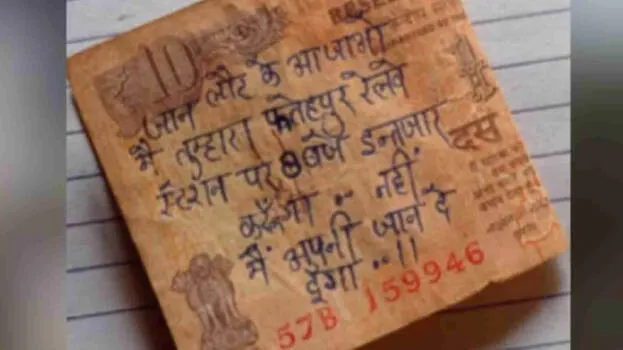 RESE
10
जान लौट के आ जाओ
मै तुम्हारा फतेहपुर रेलवे
स्टेशन पर 8 बजे इन्तजार
करूँगा .. नहीं
मैं अपनी जान दे
दूँगा ..!!
दस
57B 159946